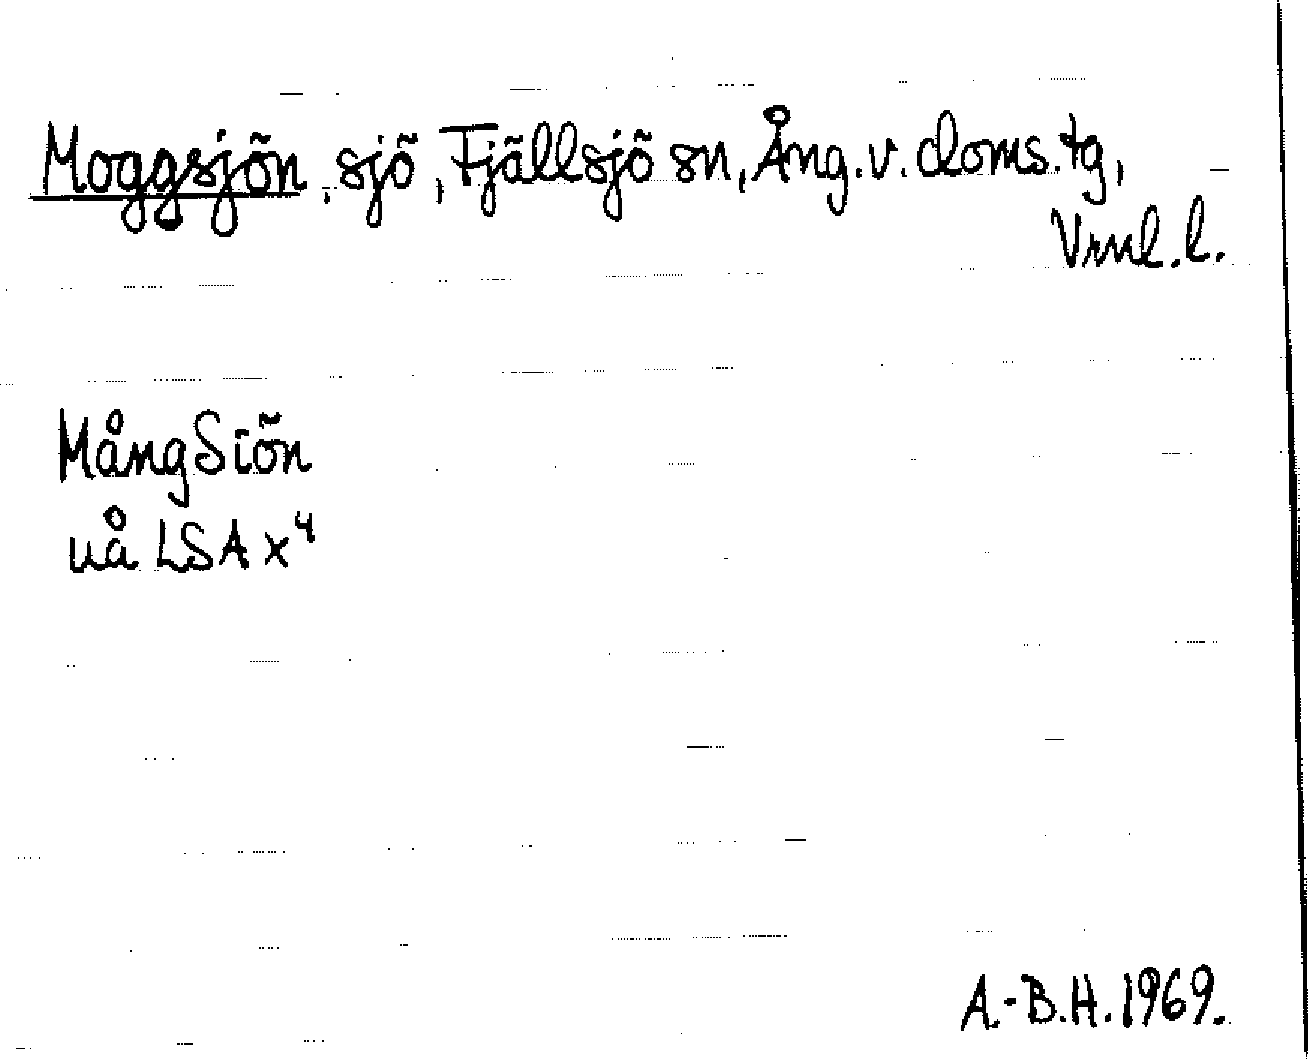 Moggsjön, sjö, Fjällsjö sn, Ång. v. doms. tg,
Vrnl. l.
MångSiön
uå LSA x⁴
A.-B.H. 1969.